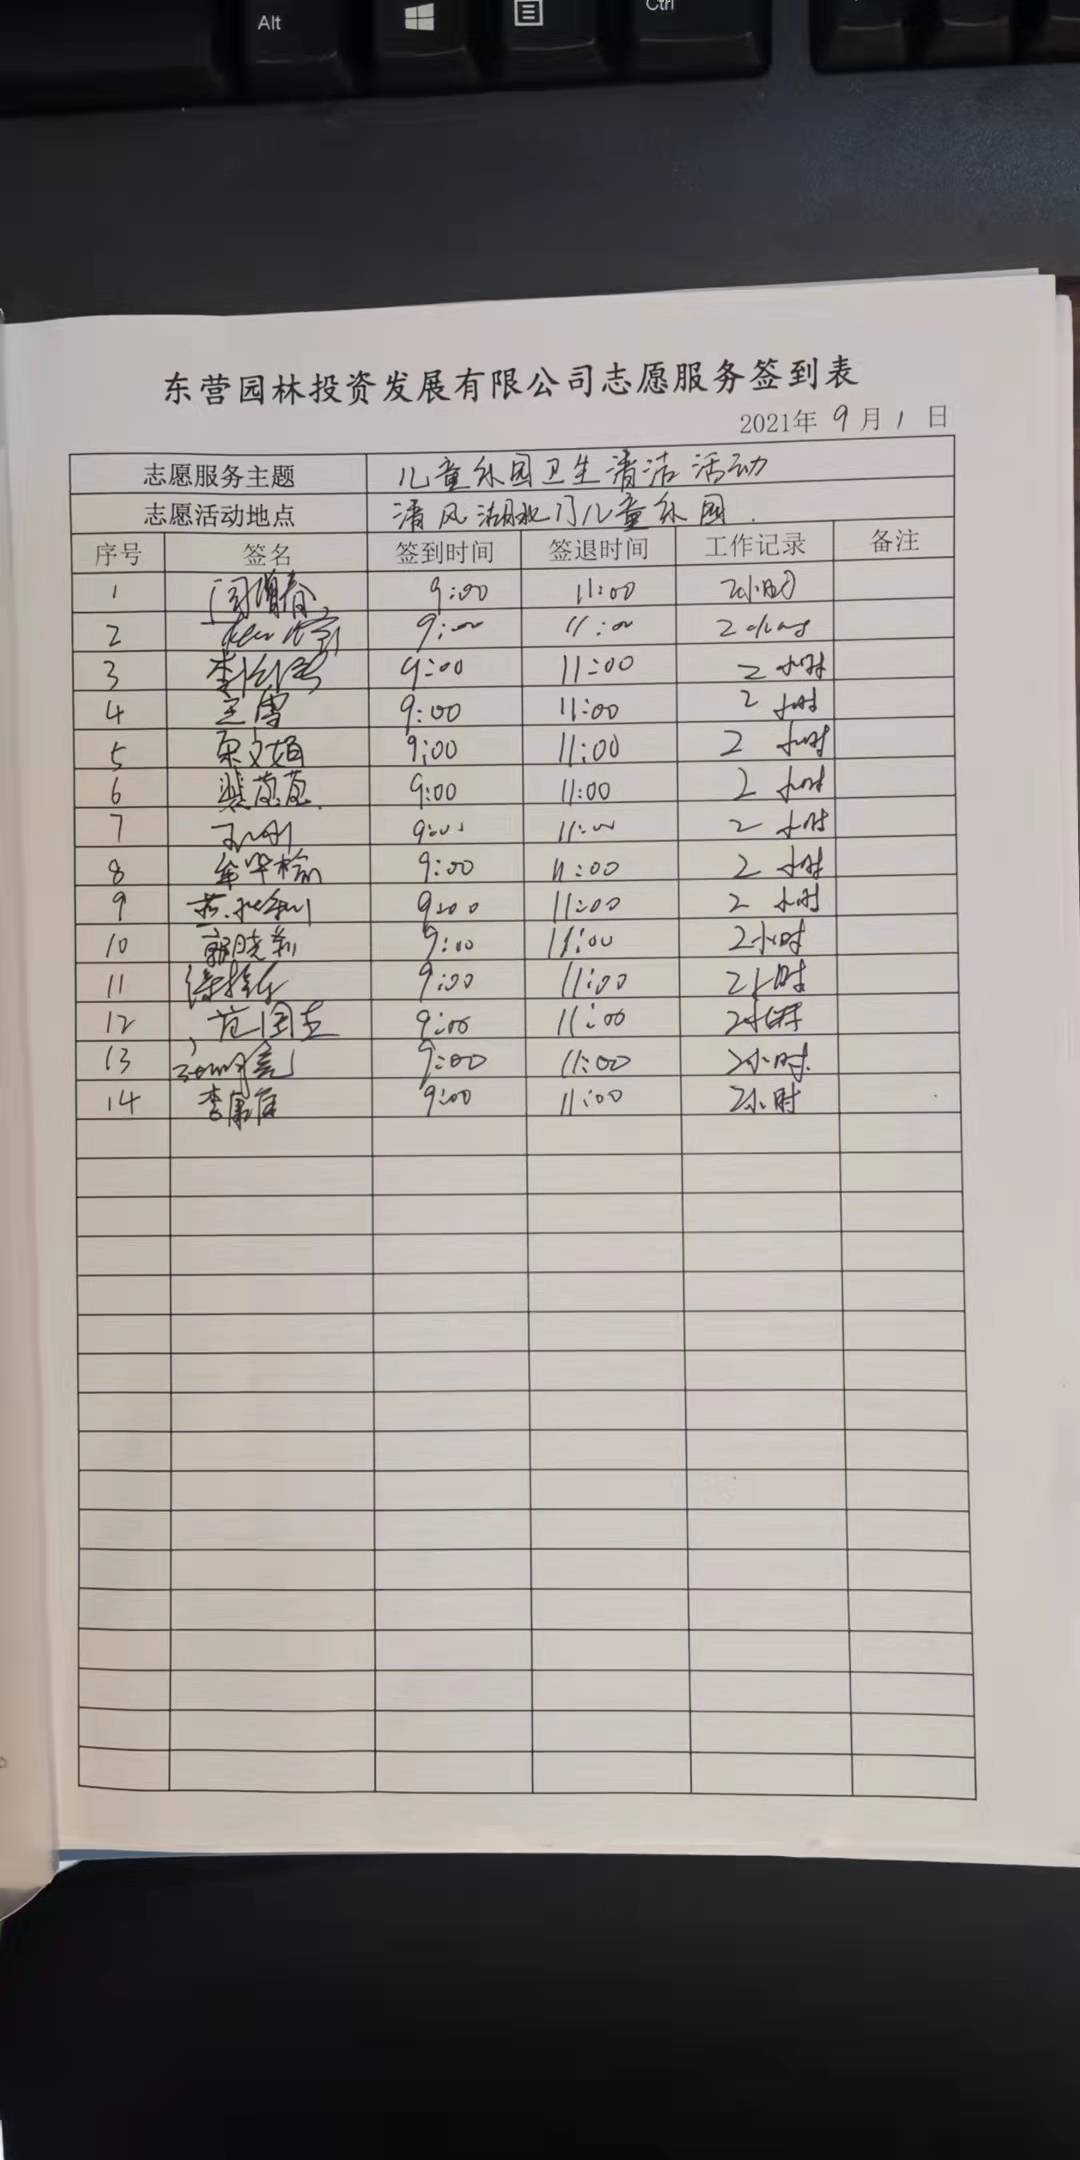 Alt
Ctrl
东营园林投资发展有限公司志愿服务签到表
2021年 9月1日
志愿服务主题 儿童乐园卫生清洁活动
志愿活动地点 清风湖北门儿童乐园.
序号 签名 签到时间 签退时间 工作记录 备注
1 9:00 11:00 2小时
2 9:00 11:00 2小时
3 9:00 11:00 2小时
4 王雪 9:00 11:00 2小时
5 9:00 11:00 2小时
6 9:00 11:00 2小时
7 9:00 11:00 2小时
8 9:00 11:00 2小时
9 9:00 11:00 2小时
10 9:00 11:00 2小时
11 9:00 11:00 2小时
12 范国志 9:00 11:00 2小时
13 9:00 11:00 2小时
14 9:00 11:00 2小时